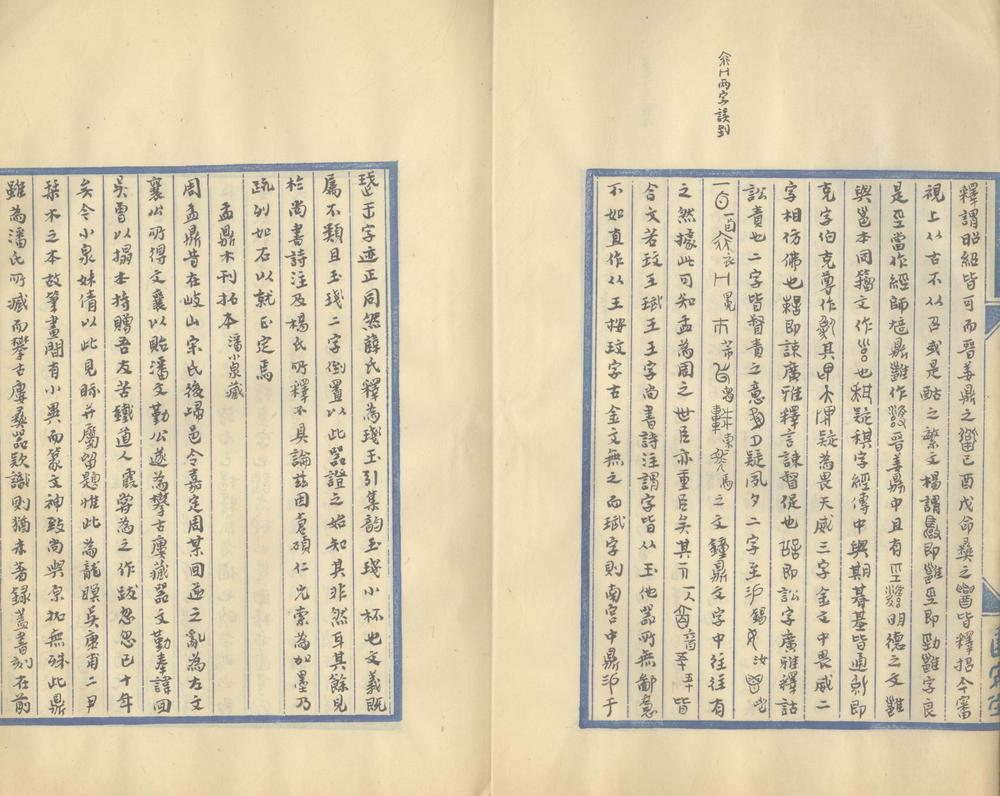 釋謂昭紹皆可而晉姜鼎之己酉戌命彝之皆釋招今審
視上从古不从召或是酤之繁文楊謂即雝巠即勁雝字良
是巠當作經師鼎雝作晉姜鼎中且有巠明德之文雝
與邕本同籀文作也疑稘字經傳中與期朞基皆通即
克字伯克尊作其疑為畏天威三字金文中畏威二
字相彷彿也即諫廣雅釋言諫督促也即訟字廣雅釋詁
訟責也二字皆督責之意疑夙夕二字至錫女汝
一卣衣冂冕巿芾舄車馬之文鐘鼎文字中往往有
之然據此可知盂為周之世臣亦重臣矣其一人五十皆
合文若玟王珷王王字尚書詩注謂字皆从玉他器所無鄙意
不如直作从王按玟字古金文無之而珷字則南宮中鼎于
珷王字迹正同然薛氏釋為琖玉引集韵玉琖小杯也文義既
屬不類且玉琖二字倒置以此器證之始知其非然耳其餘見
於尚書詩注及楊氏所釋不具論茲因碩仁兄索為加墨乃
疏列如右以就正定焉
盂鼎木刊拓本 潘小泉藏
周盂鼎昔在岐山宋氏後歸邑令嘉定周某回逆之亂為左文
襄公所得文襄以貽潘文勤公遂為攀古廔藏器文勤奉諱回
吳曾以搨本持贈吾友苦鐵道人霞蓉為之作跋忽忽已十年
矣今小泉妹倩以此見眎并屬留題惟此為龍瞑吳康甫二尹
棃木之本故筆畫間有小異而篆文神致尚與原拓無殊此鼎
雖為潘氏所藏而攀古廔彝器款識則猶未箸録蓋書刻在前
兩字誤到